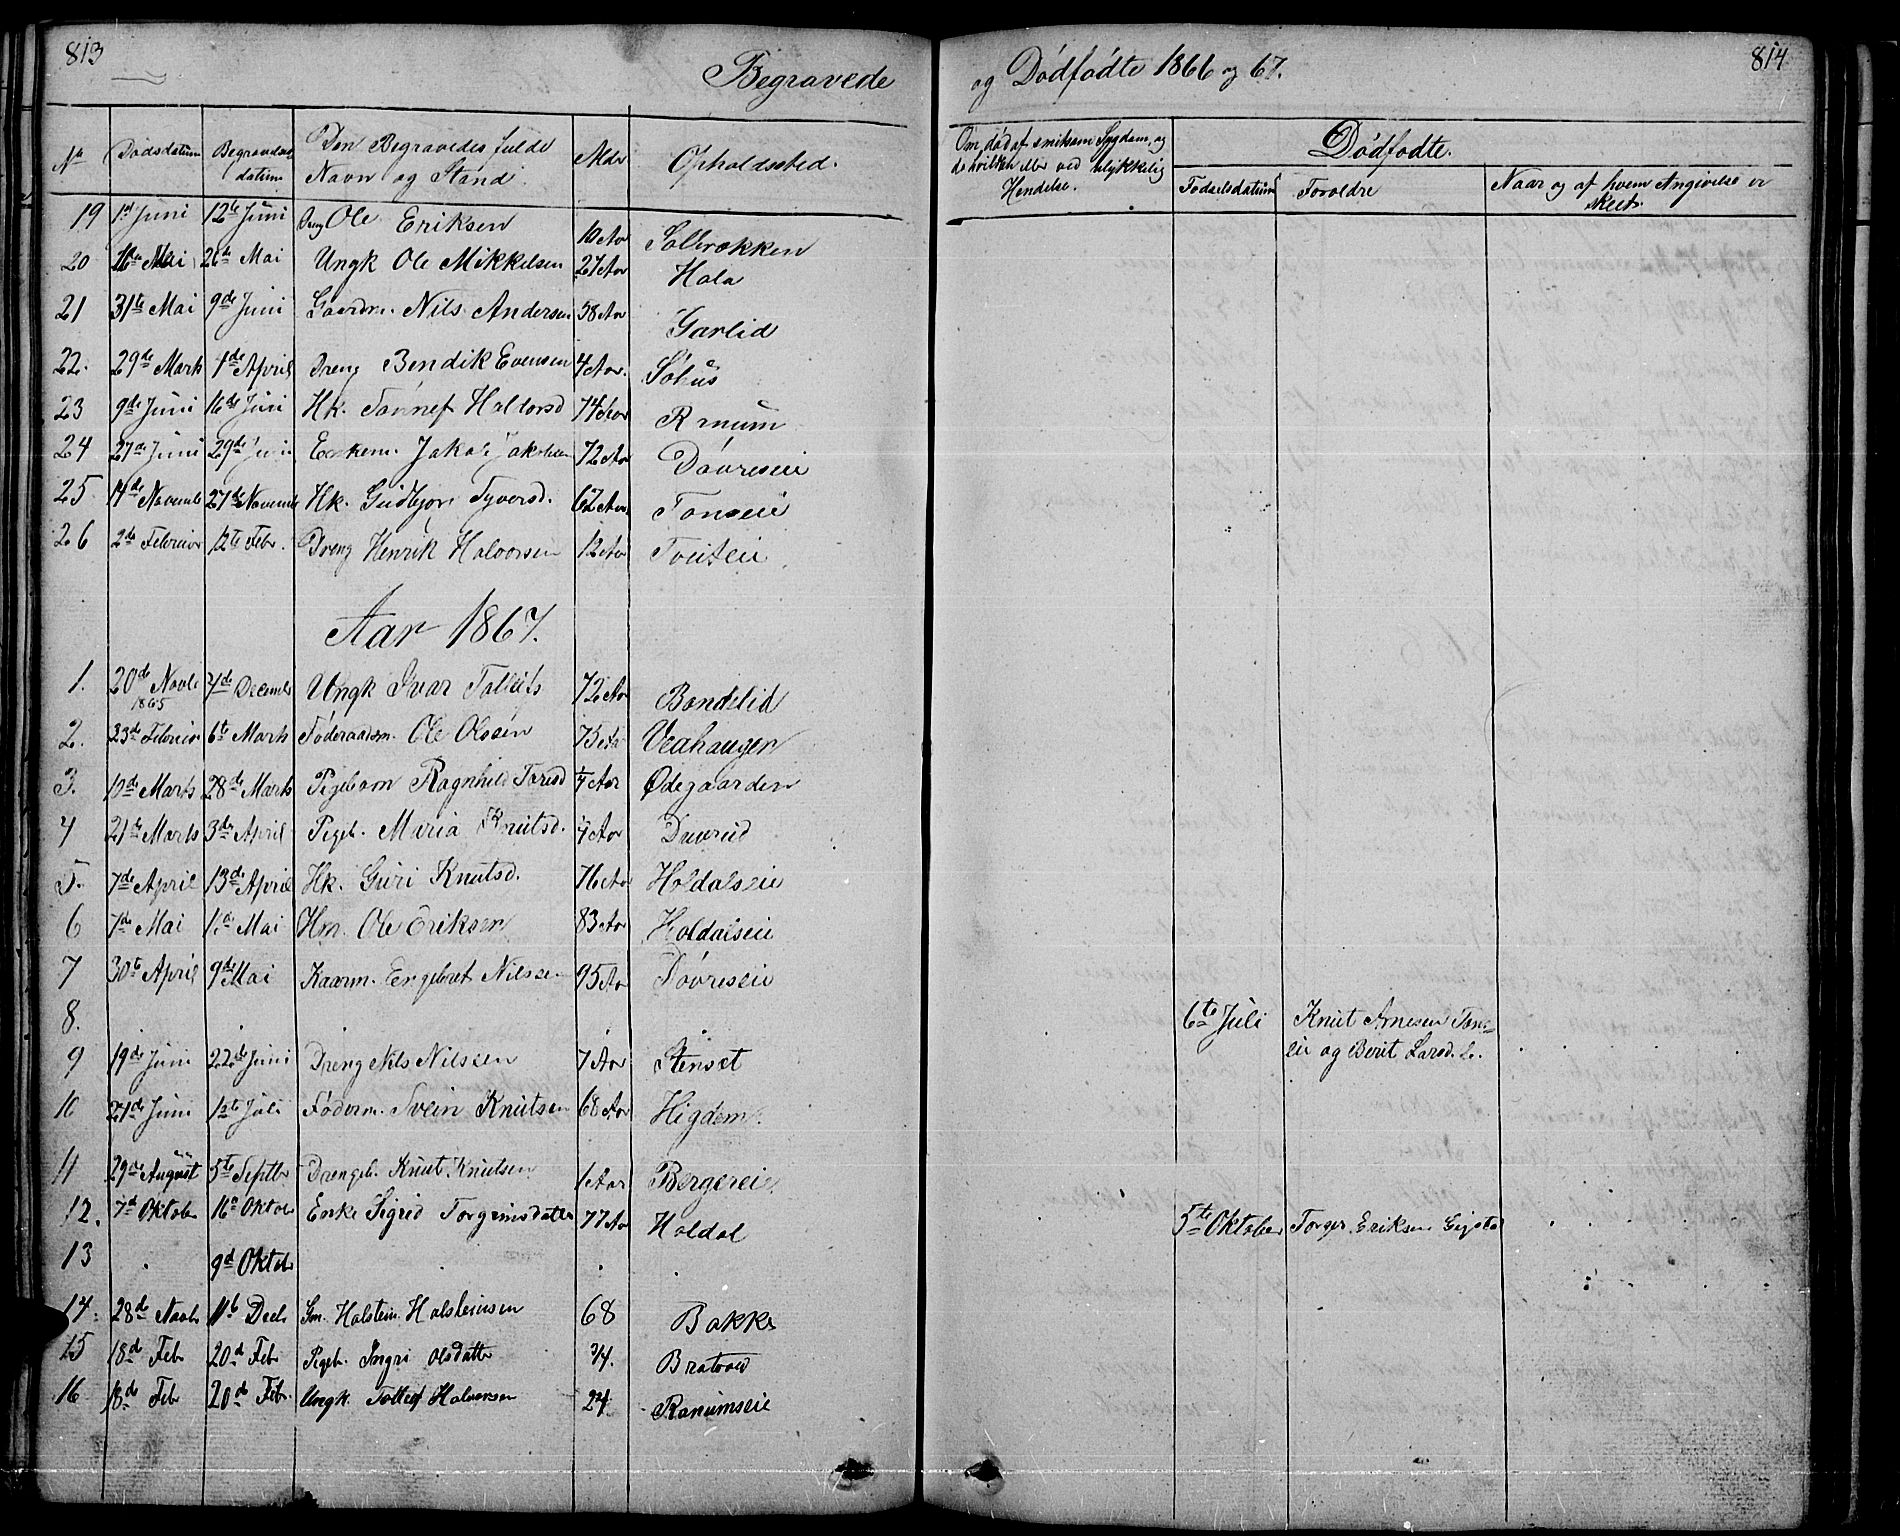 813
Begravede
No Dødsdatum Begravelses datum Den Begravedes fulde Navn og Stand. Alder Opholdssted.
19 1st Juni 12te Juni Dreng Ole Eriksen 10 Aar Solbrækken
20 Mai 26de Mai Ungk Ole Mikkelsen 27 Aar Hola
21 31te Mai 9de Juni Gaardm. Nils Andersen 58 Aar Garlid
22. 29de Marts 1de April Dreng Bendik Evensen 4 Aar. Søhus
23 9de Juni 16de Juni Hk. Haldorsd 74 Aar Rmum
24 27de Juni 29de Juni Enkem. Jakob Jakobsen 72 Aar Døvreseie
25. 14de Novembr 27de Novembr Hk. Gudbjør Syversd. 62 Aar Tonseie
26 2de Februar 12te Febr. Dreng Henrik Halvorsen 12 Aar Tveiteie
Aar 1867.
1. 20de Novbr 1865 7de Decembr Ungk Ivar Tolleifs 72 Aar Bondelid
2. 23de Februar 6te Marts Føderaadsm. Ole Olsen 75 Aar Veahaugen
3. 12de Marts 28de Marts Pigebarn Ragnhild Toresd Aar Ødegaarden
4 21de Marts 3de April Pigeb. Maria Knutsd. Aar Duvrud
5. 7de April 13de April Hk. Guri Knutsd. 76 Aar Holdalseie
6 7de Mai Mai Hm. Ole Eriksen 83 Aar Holdalseie
7 30te April 9de Mai Kaarm. Engebret Nilssen 95 Aar Døvreseie
8.
9 19de Juni 22de Juni Dreng Nils Nilssen 7 Aar Stenset
10 24de Juni 12te Juli Føderm. Svein Knutsen 68 Aar Higdem.
11 29de August 5te Septbr Drengeb. Knut Knutsen 1 Aar Bergereie.
12. 7d Oktobr 16d Oktobr Enke Sigrid Torgrimsdatter 77 Aar Holdal
13 . 9d Oktobr . .
14. 28de Novbr 11te Decb Gm. Halstein Halsteinsen 68 Bakke
15 18de Feb 20d Feb Pigeb. Ingri Olsdatter 3/4. Bratvold
16 18de Feb 20de Feb. Ungk. Tollef Halvorsen 24 Ranumseie
814
og Dödfødte 1866 og 67.
Om død af smitsom Sygdom, og da hvilken eller ved ulykkelig Hendelse.
Dødfødte.
Fødselsdatum Foreldre Naar og af hvem Angivelse er skeet.
6te Juli Knut Arnesen Tons-
eie og Berit Larsd. do.
5te Oktober Torger Eriksen